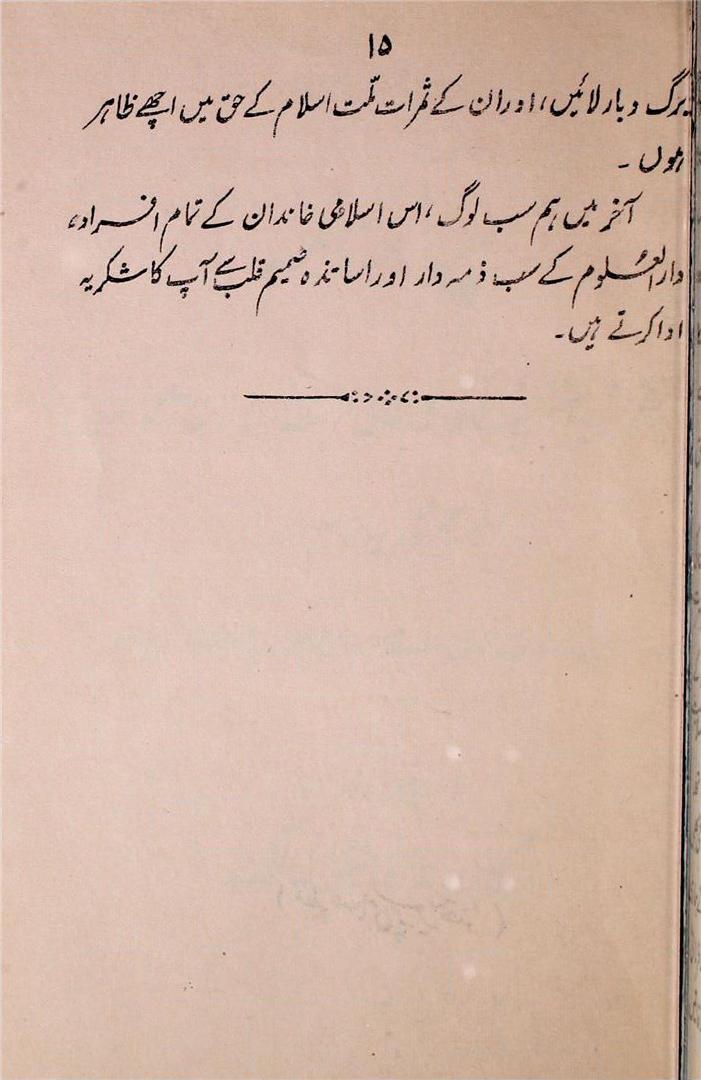 ۱۵
برگ و بار لائیں، اور ان کے ثمرات ملّت اسلام کے حق میں اچھے ظاہر
ہوں ۔
آخر میں ہم سب لوگ، اس اسلامی خاندان کے تمام افراد،
دارالعلوم کے سب ذمہ دار اور اساتذہ صمیم قلب سے آپ کا شکریہ
ادا کرتے ہیں۔